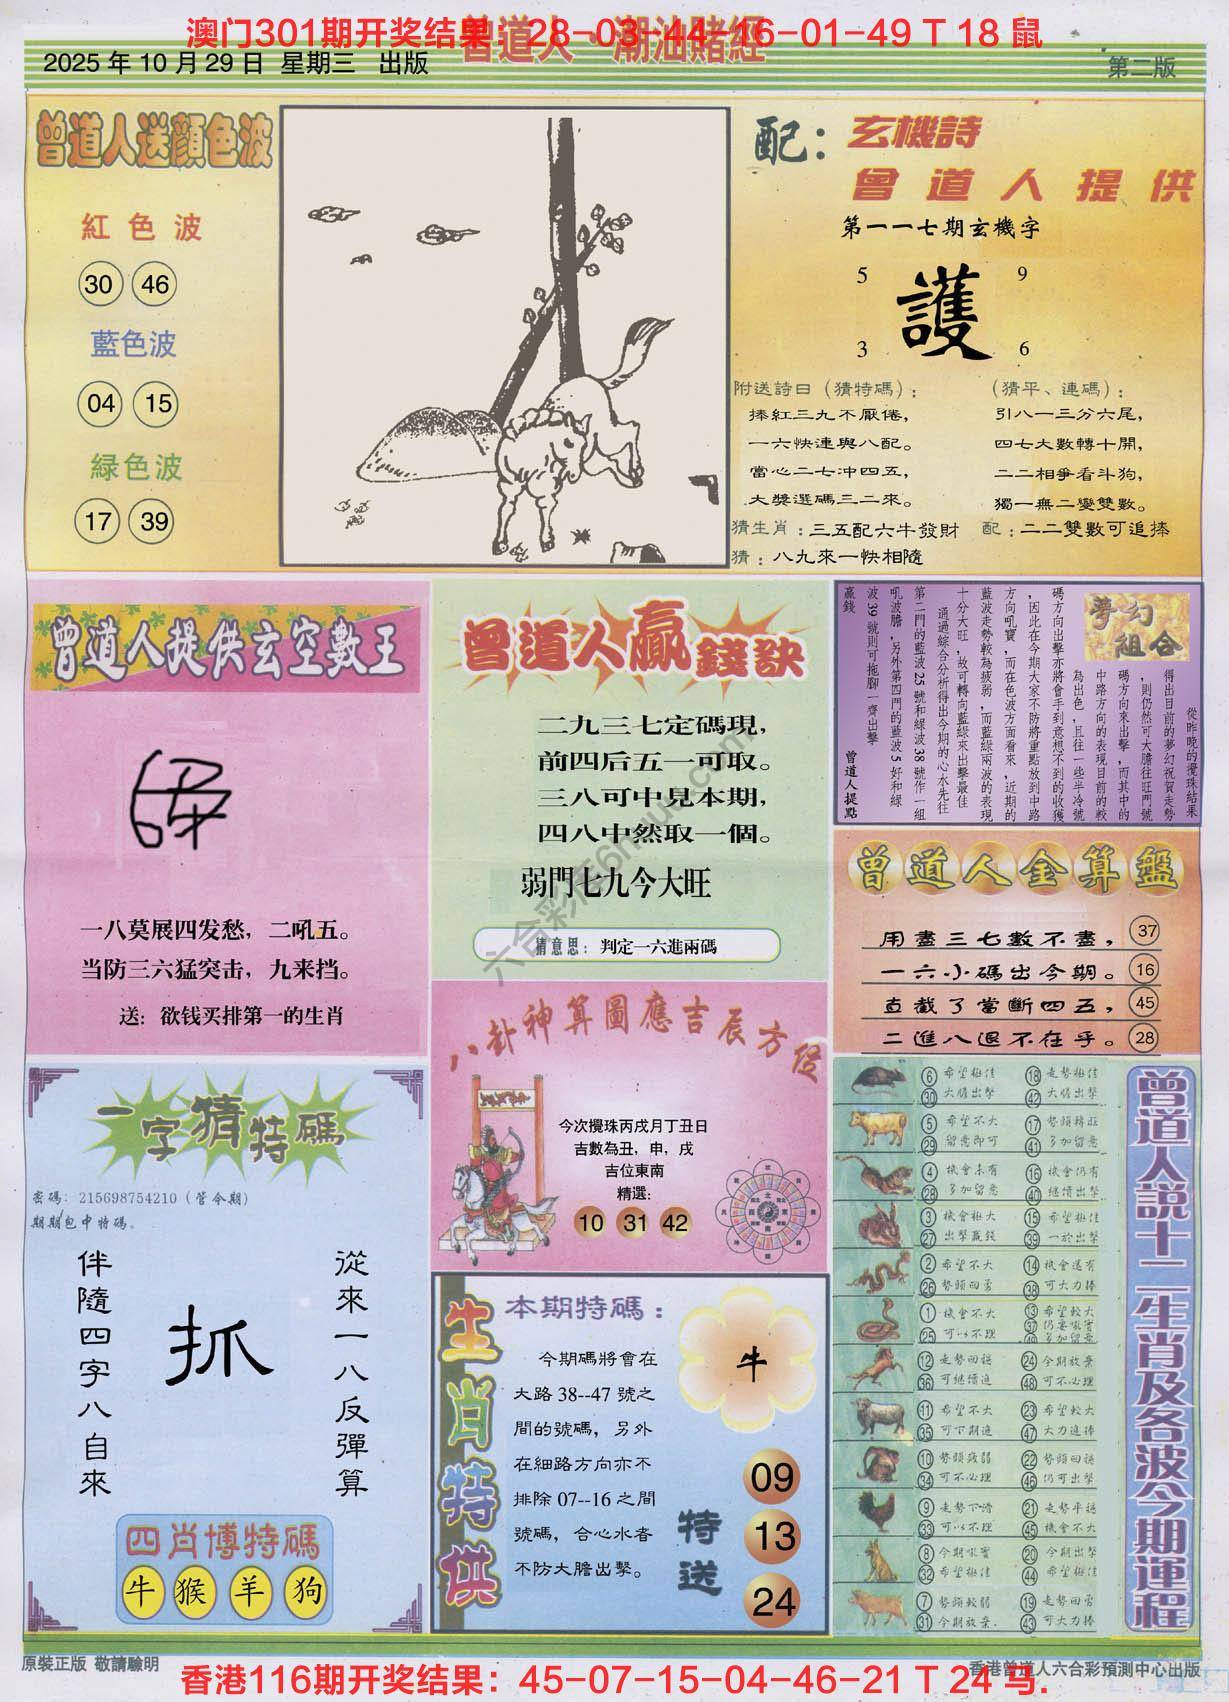 澳门301期开奖结果：28-03-44-16-01-49 T 18 鼠
曾道人·潮汕賭經
2025 年 10 月 29 日 星期三 出版
第二版
曾道人送顏色波
紅色波
30 46
藍色波
04 15
緑色波
17 39
配：玄機詩
曾道人提供
第一一七期玄機字
5 9
護
3 6
附送詩曰（猜特碼）：
捧紅三九不厭倦，
一六快連與八配。
當心二七冲四五，
大獎選碼三二來。
（猜平、連碼）：
引八一三分六尾，
四七大數轉十開，
二二相爭看斗狗，
獨一無二變雙數。
猜生肖：三五配六牛發財
配：二二雙數可追捧
猜：八九來一快相隨
曾道人提供玄空數王
一八莫展四发愁，二吼五。
当防三六猛突击，九来挡。
送：欲钱买排第一的生肖
曾道人贏錢訣
二九三七定碼現，
前四后五一可取。
三八可中見本期，
四八中然取一個。
弱門七九今大旺
猜意思：判定一六進兩碼
夢幻組合
從昨晚的攪珠結果
得出目前的夢幻祝賀走勢
，則仍然可大膽往旺門號
碼方向來出擊，而其中的
中路方向的表現目前的較
為出色，且往一些半冷號
碼方向出擊亦將會手到意想不到的收獲
，因此在今期大家不防將重點放到中路
方向吼寶，而在色波方面看來，近期的
藍波走勢較為疲弱，而藍綠兩波的表現
十分大旺，故可轉向藍綠來出擊最佳
通過綜合分析得出今期的心水先往
第二門的藍波25號和綠波38號作一組
吼波膽，另外第四門的藍波5好和綠
波39號則可拖腳一齊出擊
贏錢
曾道人提點
曾道人金算盤
用盡三七數不盡，37
一六小碼出今期。16
直截了當斷四五，45
二進八退不在乎。28
八卦神算圖應吉辰方位
今次攪珠丙戌月丁丑日
吉數為丑，申，戌
吉位東南
精選:
10 31 42
一字猜特碼
密碼：215698754210（管令期）
期期包中特碼。
從來一八反彈算
抓
伴隨四字八自來
四肖博特碼
牛 猴 羊 狗
生肖特供
本期特碼：
今期碼將會在
大路 38--47 號之
間的號碼，另外
在細路方向亦不
排除 07--16 之間
號碼，合心水者
不防大膽出擊。
牛
特送
09
13
24
曾道人説十二生肖及各波今期運程
6 希望極佳 18 走勢極佳
30 大膽出擊 42 大膽出擊
5 希望不大 17 勢頭轉旺
29 留意即可 41 多加留意
4 機會未有 16 機會仍有
28 多加留意 40 繼續出擊
3 機會極大 15 希望極佳
27 出擊贏錢 39 一於出擊
2 希望不大 14 機會還有
26 勢頭回勇 38 可大力捧
1 機會不大 13 希望較大
25 可以不理 37 仍要吼實
49 多加留意
12 走勢回穩 24 今期放棄
36 可繼續追 48 可不必理
11 希望不大 23 希望較大
35 可下期追 47 大力追捧
10 勢頭疲弱 22 勢頭回穩
34 可不必理 46 仍可出擊
9 走勢下滑 21 走勢平穩
33 可以不理 45 機會不大
8 今期吼實 20 今期出擊
32 希望極佳 44 希望極佳
7 勢頭較弱 19 走勢回勇
31 今期放棄. 43 可大力捧
原裝正版 敬請驗明
香港曾道人六合彩預測中心出版
香港116期开奖结果：45-07-15-04-46-21 T 24 马.